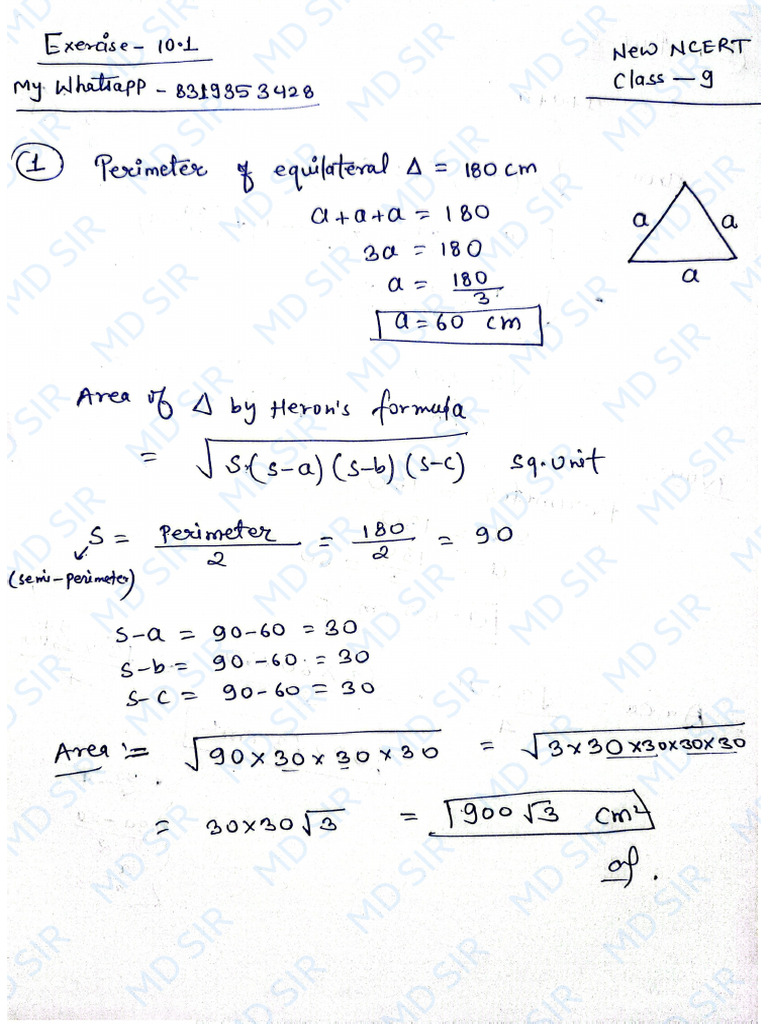 Exercise - 10.1
New NCERT
My Whatsapp - 8319353428
Class - 9
① Perimeter of equilateral Δ = 180 cm
a+a+a = 180
3a = 180
a = 180/3
a = 60 cm
a a
a
Area of Δ by Heron's formula
= √S.(s-a)(s-b)(s-c) sq. unit
S = Perimeter/2 = 180/2 = 90
(semi-perimeter)
s-a = 90-60 = 30
s-b = 90-60 = 30
s-c = 90-60 = 30
Area := √90×30×30×30 = √3×30×30×30×30
= 30×30√3 = 900√3 cm²
MD SIR